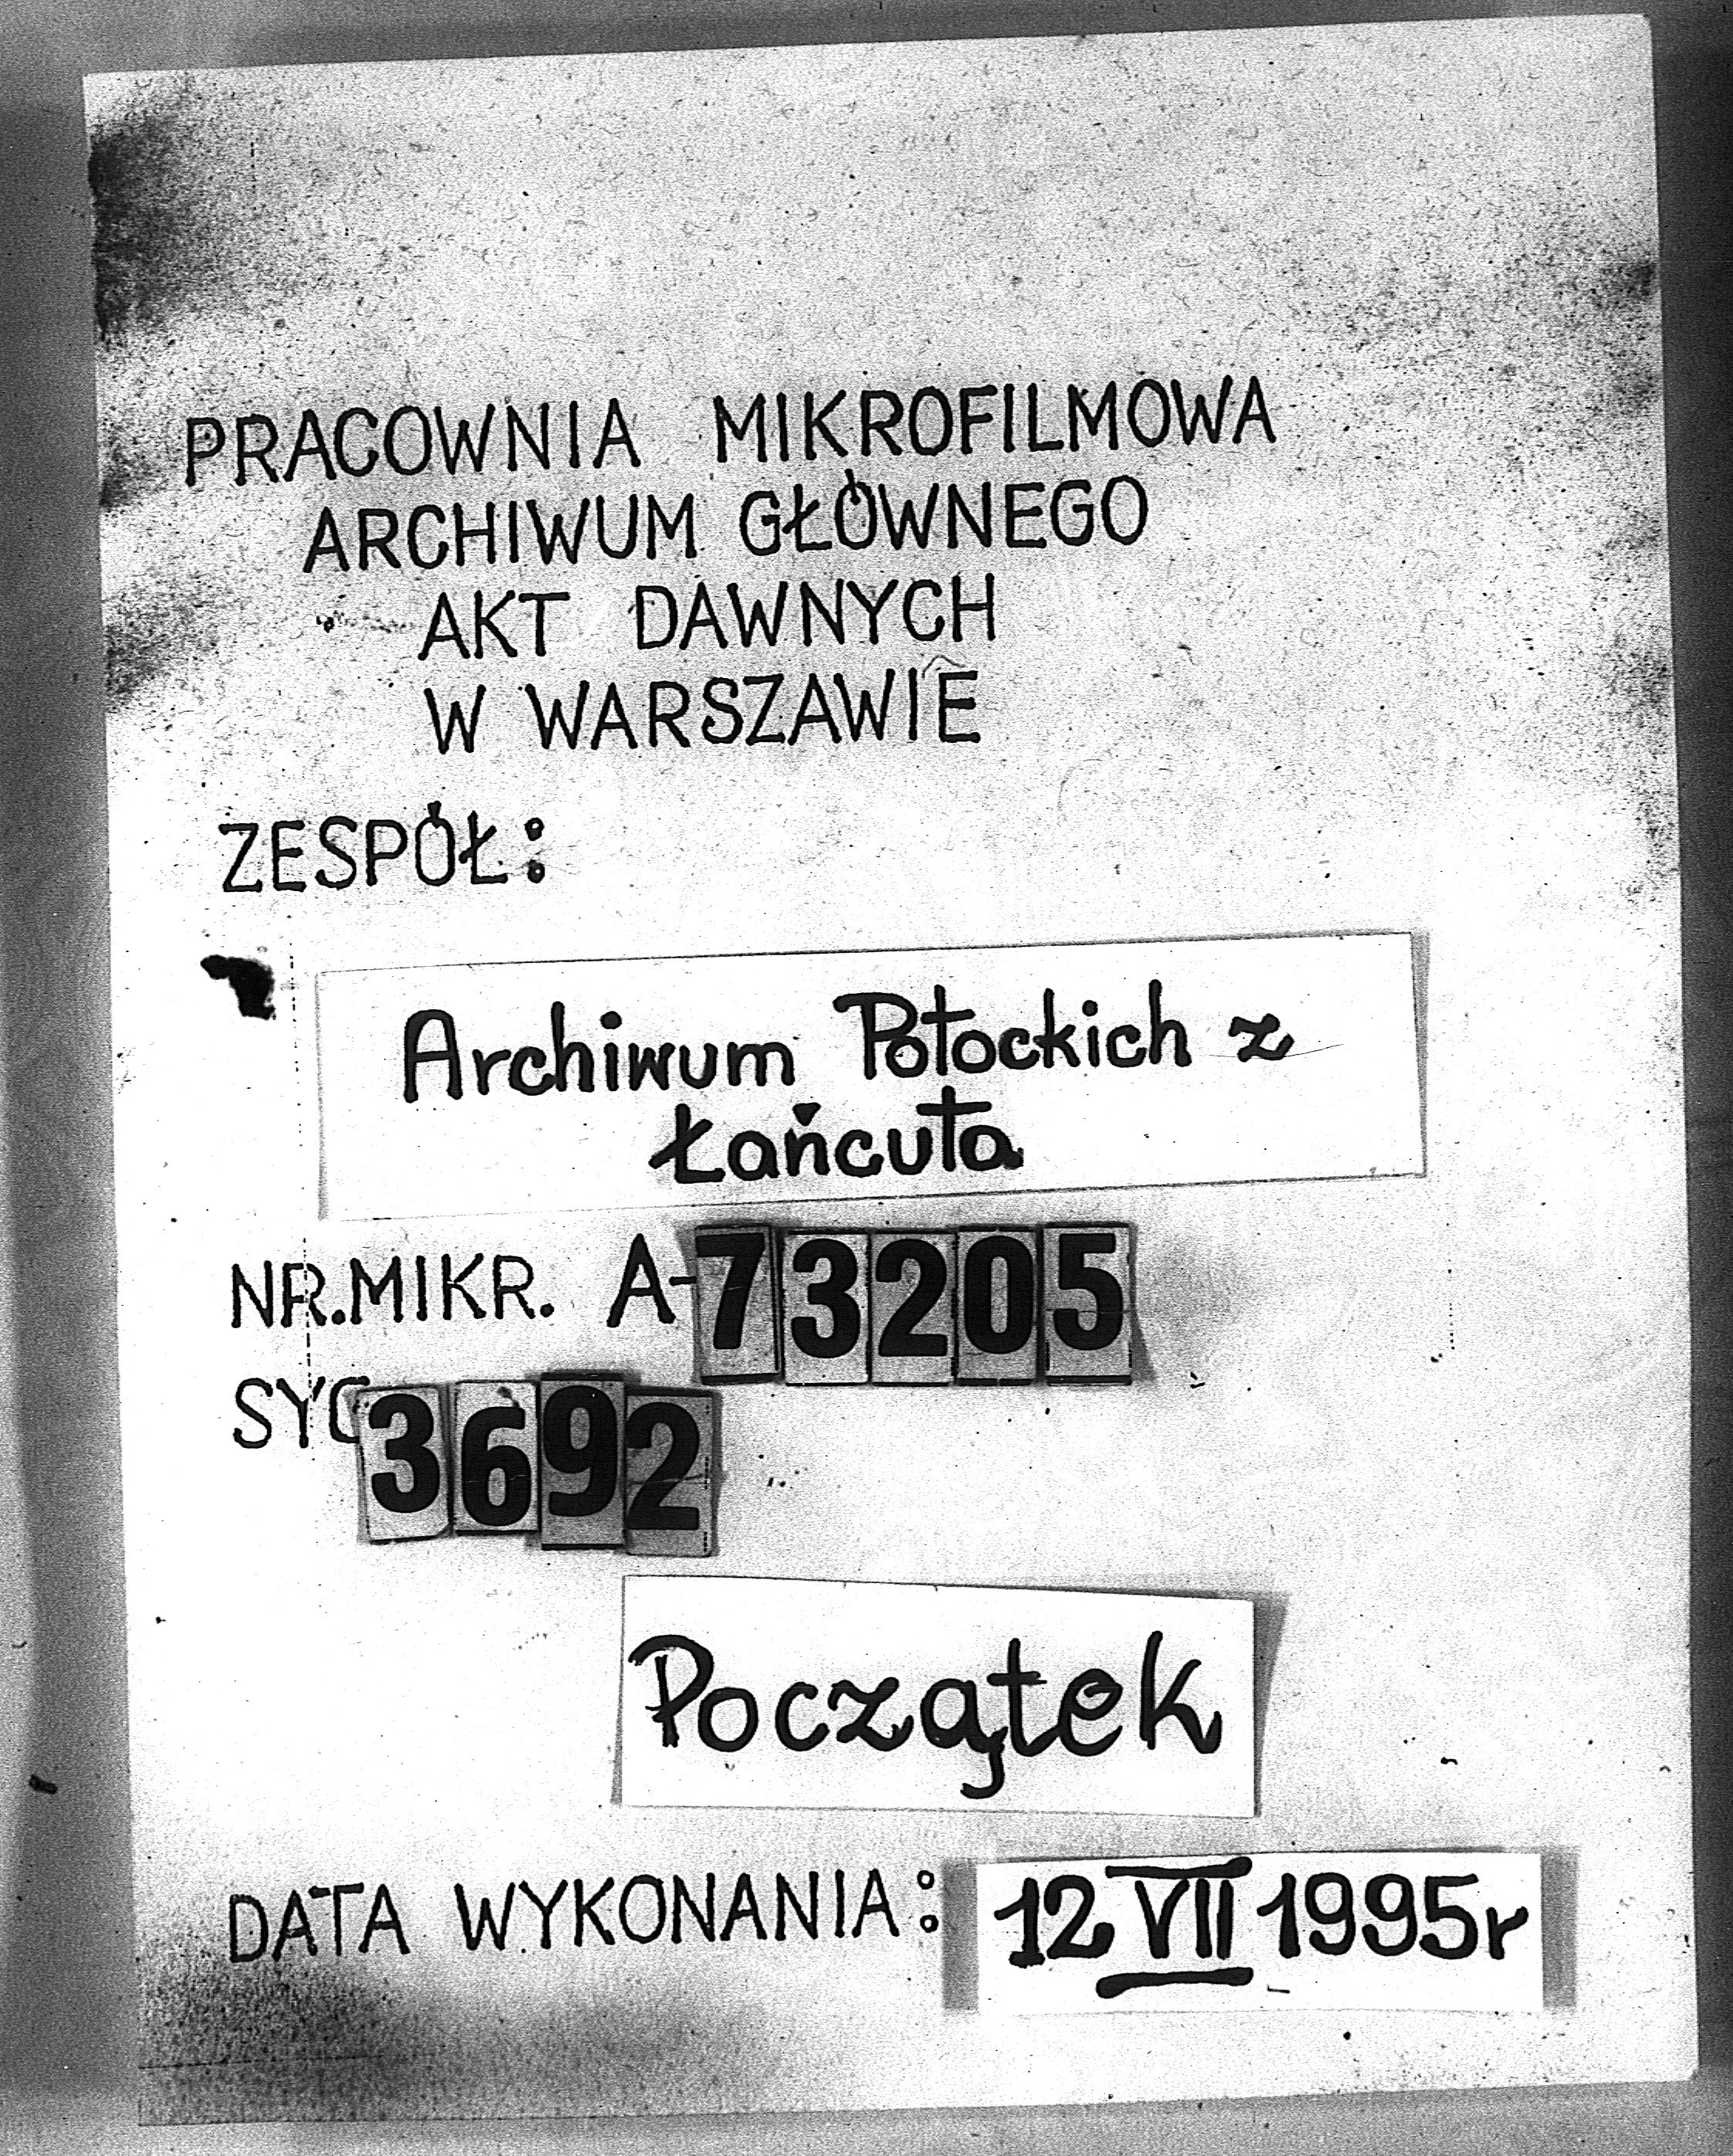 PRACOWNIA MIKROFILMOWA
ARCHIWUM GŁÓWNEGO
AKT DAWNYCH
W WARSZAWIE
ZESPÓŁ:
Archiwum Potockich z
Łańcuta
NR.MIKR. A-73205
SYG 3692
Początek
DATA WYKONANIA: 12 VII 1995r